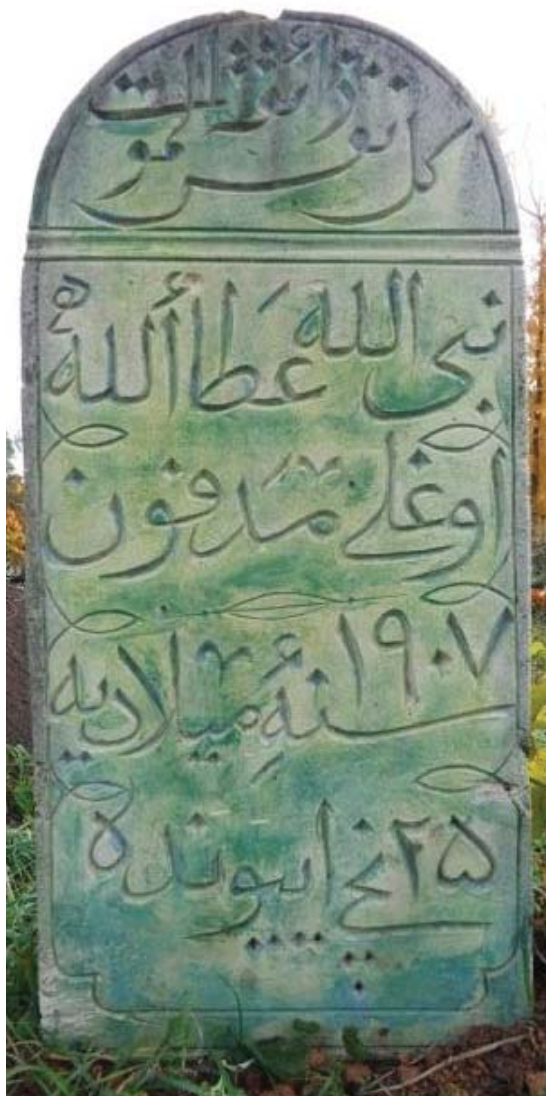 كل نفس ذائقة الموت
نبى الله عطاألله
اوغلى مدفون
١٩٠٧
سنهٔ ميلاديه
٢٥ نچى اييونده